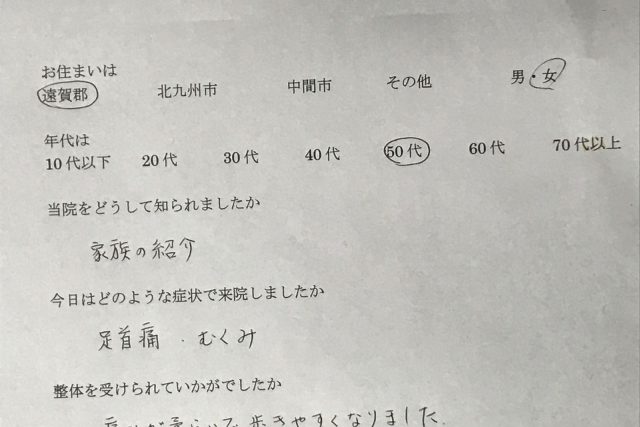 お住まいは
遠賀郡 北九州市 中間市 その他 男・女
年代は
10代以下 20代 30代 40代 50代 60代 70代以上
当院をどうして知られましたか
家族の紹介
今日はどのような症状で来院しましたか
足首痛・むくみ
整体を受けられていかがでしたか
歩きやすくなりました